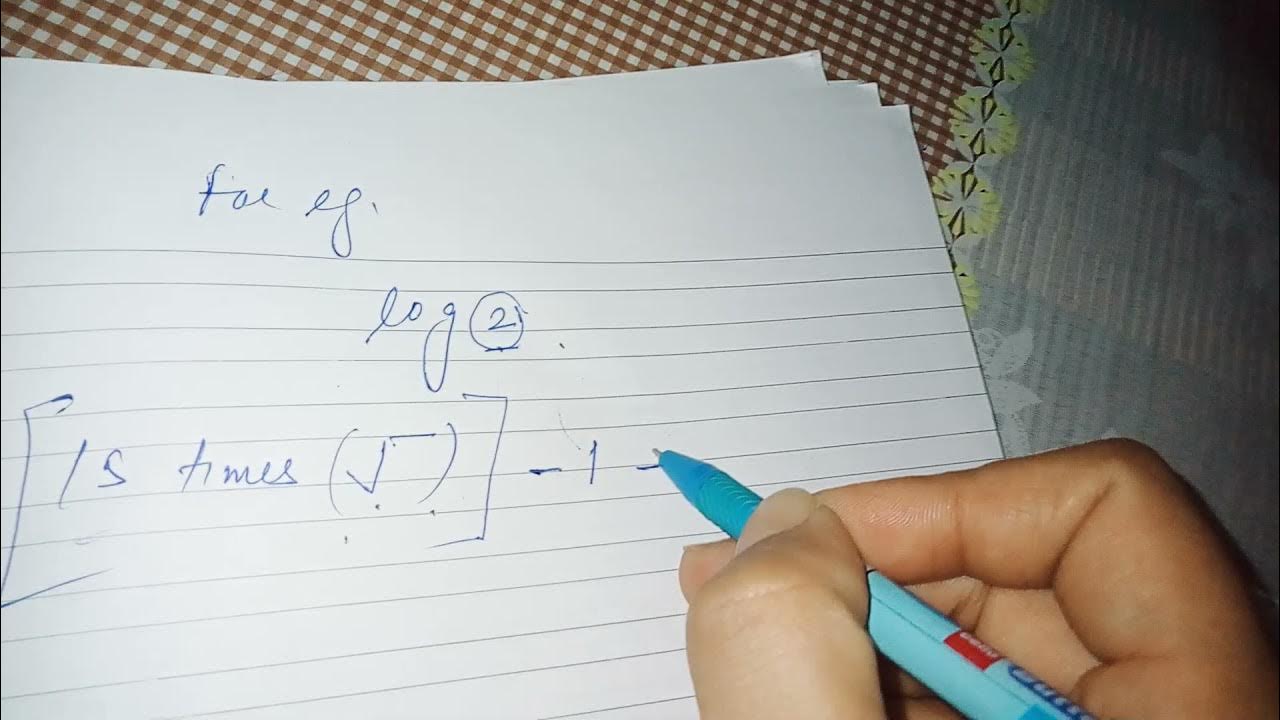 For eg.
log 2
[15 times (√ )] - 1 -